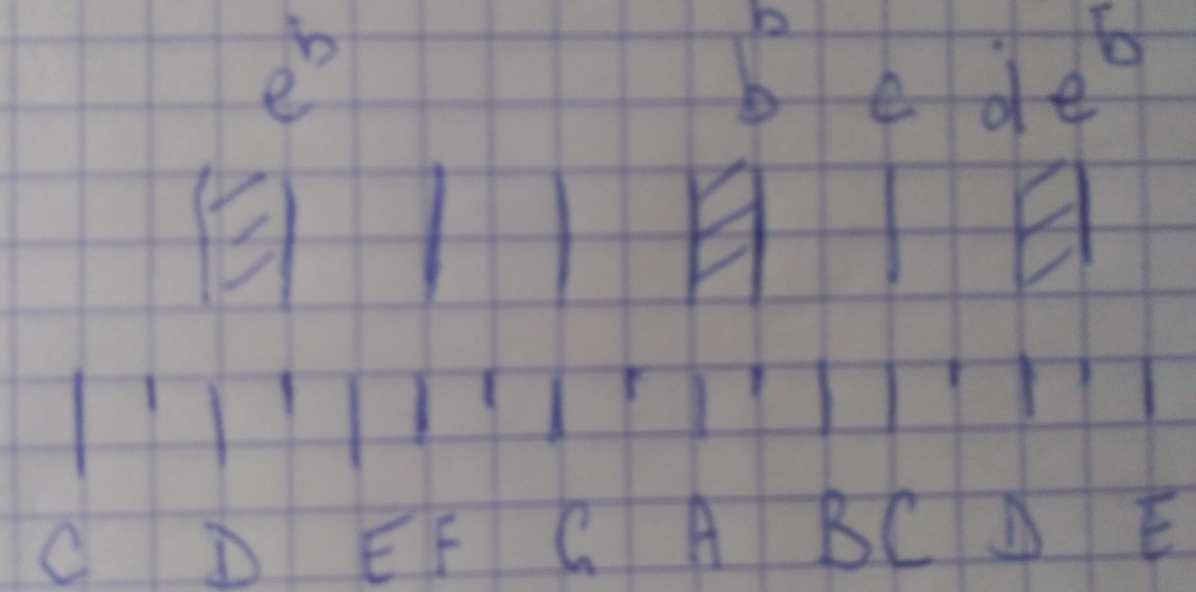 e♭ b♭ c d e♭
C D E F G A B C D E